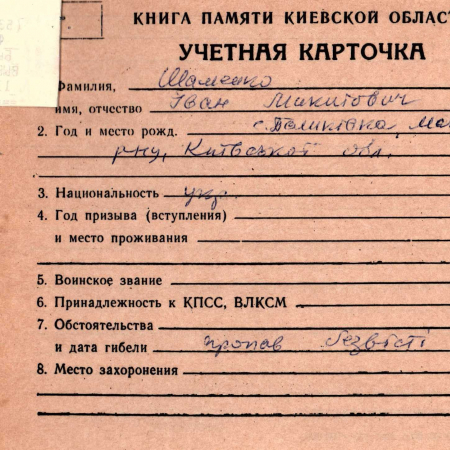 КНИГА ПАМЯТИ КИЕВСКОЙ ОБЛАСТ
УЧЕТНАЯ КАРТОЧКА
Фамилия, Шаменко
имя, отчество Іван Микитович
2. Год и место рожд. с.
р-ну, Київської обл.
3. Национальность укр.
4. Год призыва (вступления)
и место проживания
5. Воинское звание
6. Принадлежность к КПСС, ВЛКСМ
7. Обстоятельства
и дата гибели пропав безвісті
8. Место захоронения